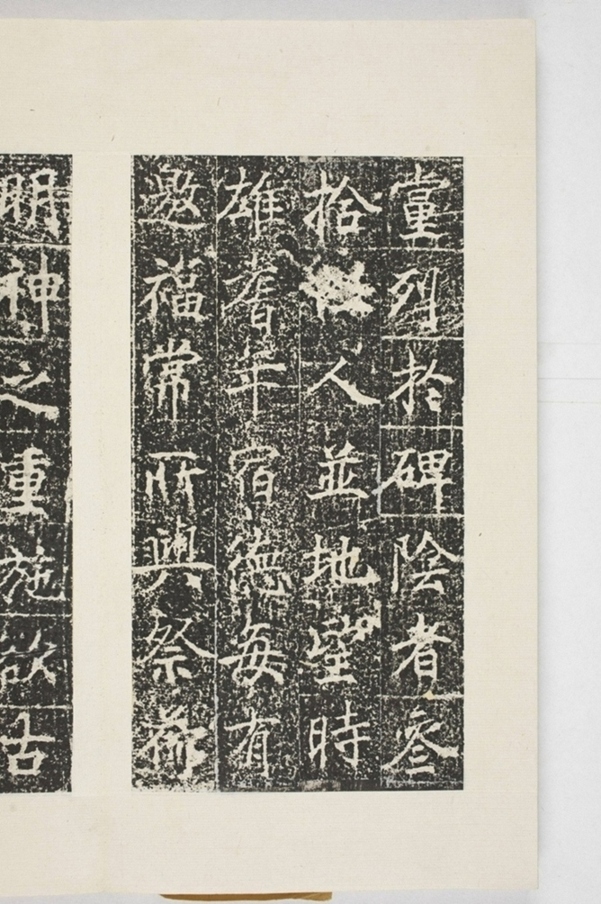 黨列於碑陰者叁
拾人並地望時
雄耆年宿德每有
邀福常所與祭
明神之重施欲古